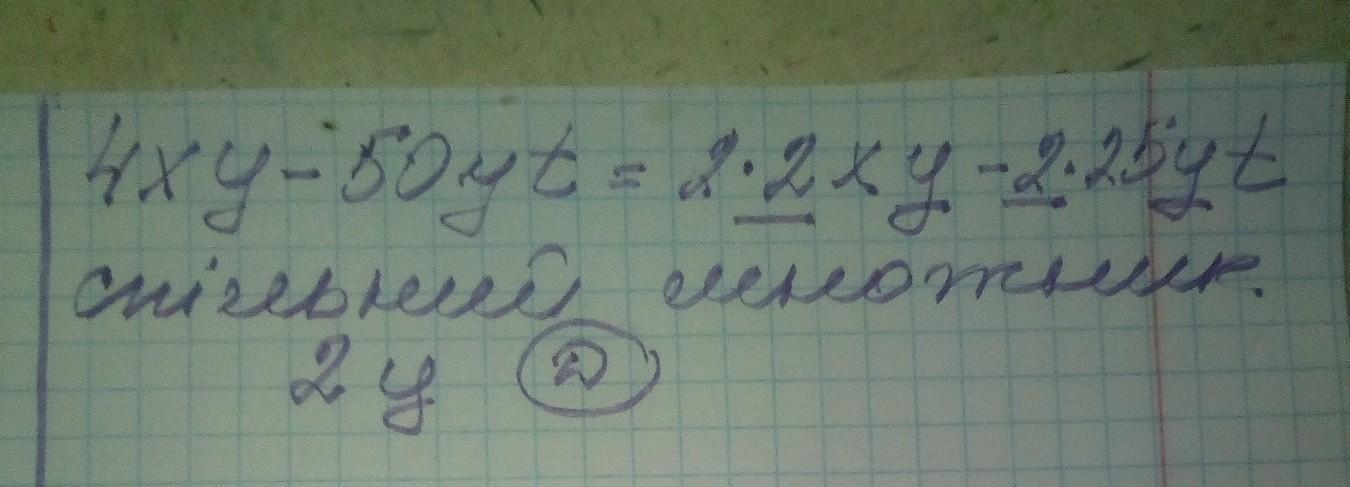 4xy-50yt=2·2xy-2·25yt
спільний множник.
2y Д